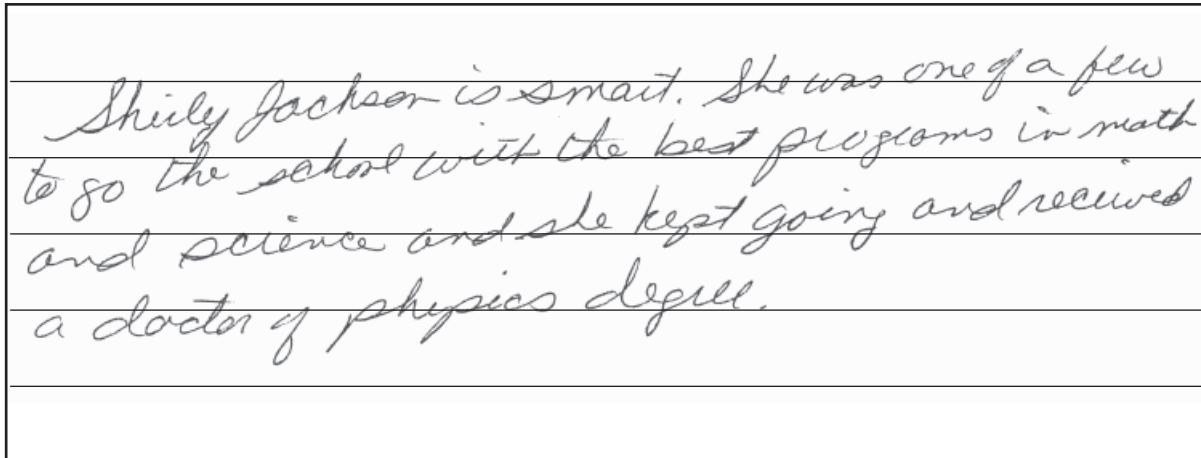 Shirly Jackson is smart. She was one of a few
to go the school with the best programs in math
and science and she kept going and recieved
a doctor of physics degree.